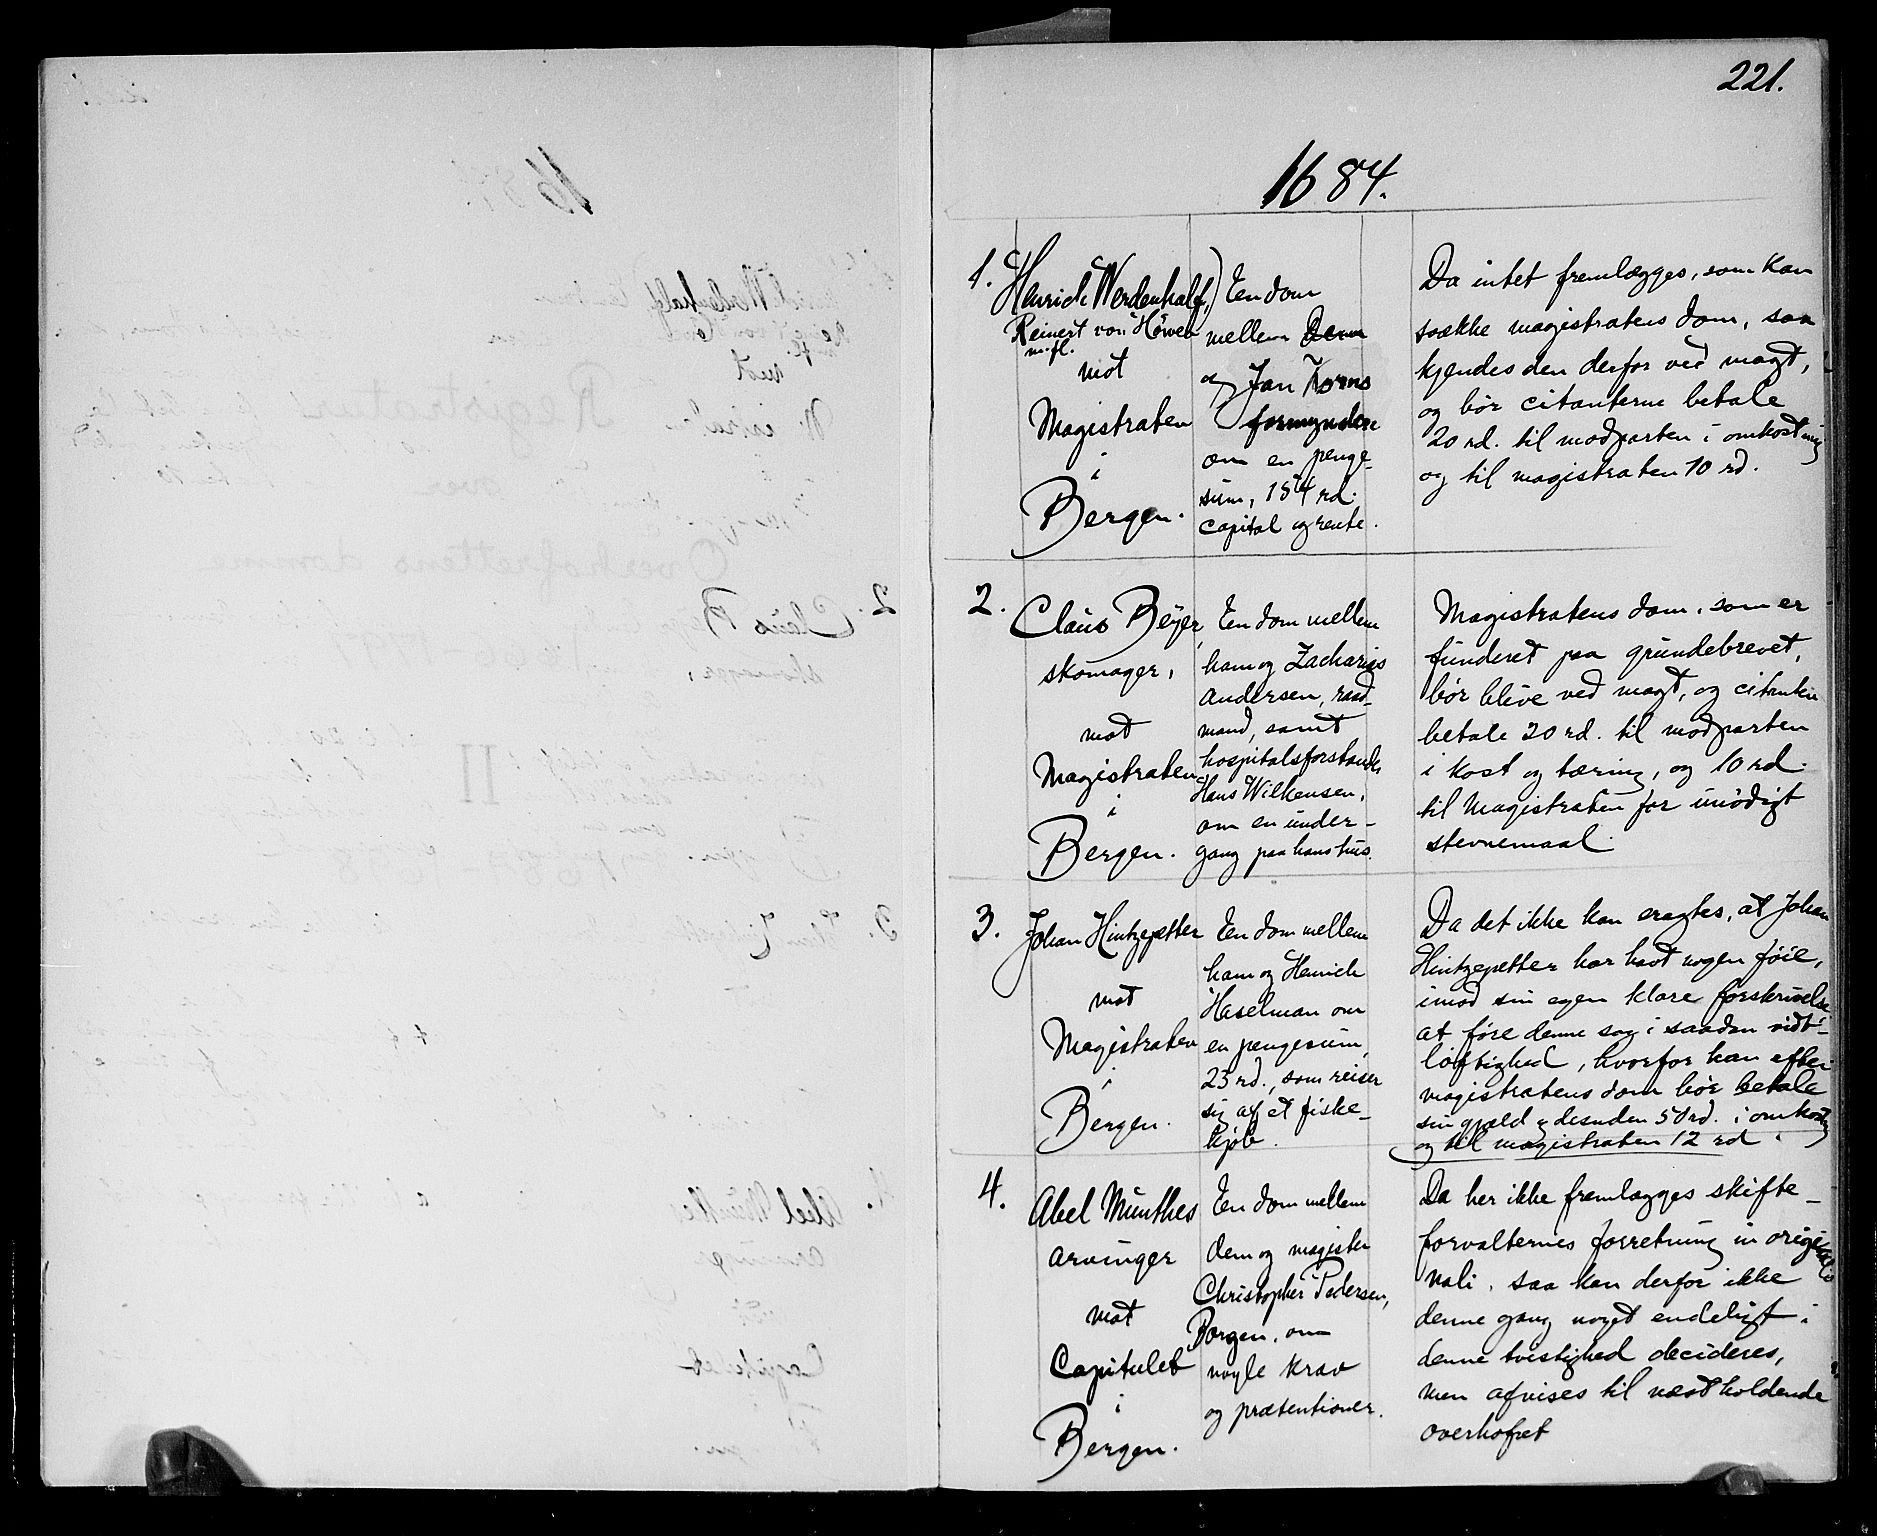 221.
1684.
1.
Henrich Werdenhalf,
Reinert von Höwen
m.fl.
mot
Magistraten
i
Bergen.
En dom
mellem Dem
og Jan Korns
formyndere
om en penge-
sum, 154 rd.
capital og rente.
Da intet fremlægges, som kan
svække magistratens dom, saa
kjendes den derfor ved magt,
og bör citanterne betale
20 rd. til modparten i omkostning
og til magistraten 10 rd.
2.
Claus Beyer,
skomager,
mot
Magistraten
i
Bergen.
En dom mellem
ham og Zacharias
Andersen, raad-
mand, samt
hospitalsforstander
Hans Wilkensen,
om en under-
gang paa hans hus.
Magistratens dom, som er
funderet paa grundebrevet,
bör blive ved magt, og citanten
betale 20 rd. til modparten
i kost og tæring, og 10 rd.
til Magistraten for unödigt
stevnemaal.
3.
Johan Hintzepetter
mot
Magistraten
i
Bergen.
En dom mellem
ham og Henrich
Haselman om
en pengesum,
23 rd., som reiser
sig af et fiske-
kjöb.
Da det ikke kan eragtes, at Johan
Hintzepetter har havt nogen föie,
imod sin egen klare forskrivelse
at före denne sag i saadan vidt-
löftighed, hvorfor han efter
magistratens dom bör betale
sin gjæld og desuden 50 rd. i omkostning
og til magistraten 12 rd.
4.
Abel Munthes
arvinger
mot
Capitulet
i
Bergen.
En dom mellem
dem og magister
Christopher Pedersen,
Borgen, om
nogle krav
og prætentioner.
Da her ikke fremlægges skifte-
forvalternes forretning in origi-
nali, saa kan derfor ikke
denne gang noget endeligt i
denne tvistighed decideres,
men afvises til næstholdende
overhofret